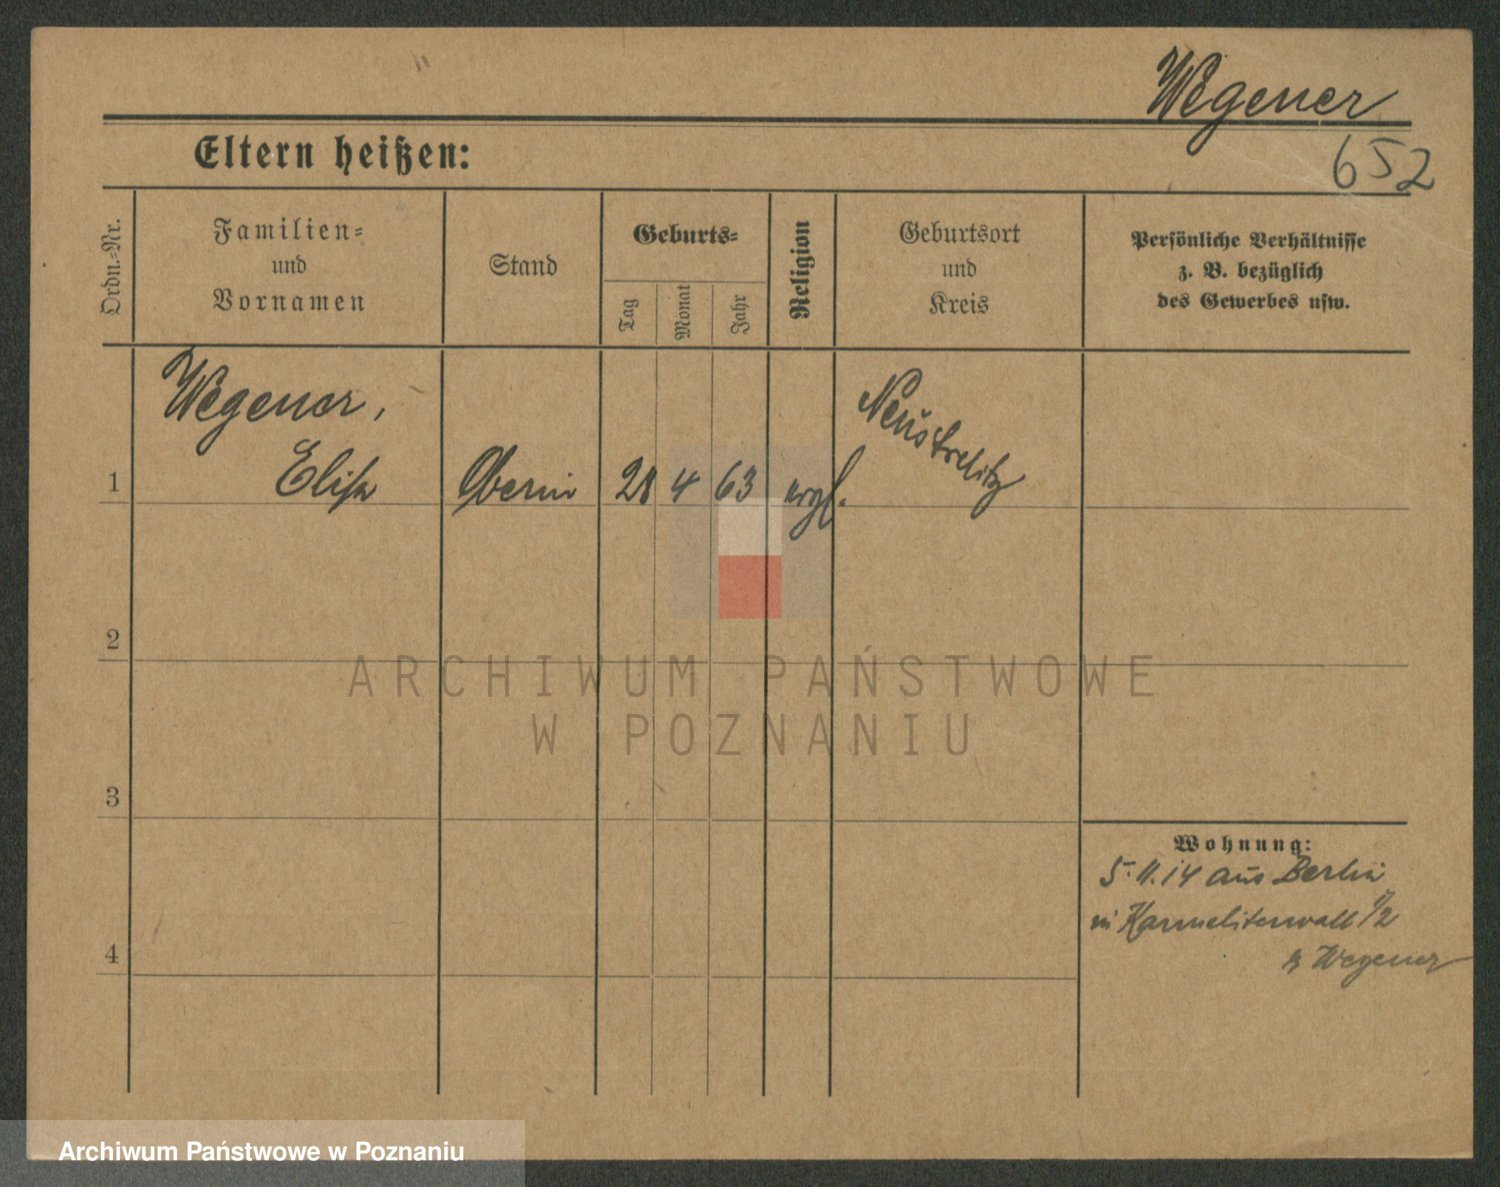 Wegener
652
Eltern heißen:
Ordn.-Nr.
Familien-
und
Vornamen
Stand
Geburts-
Tag
Monat
Jahr
Religion
Geburtsort
und
Kreis
Persönliche Verhältnisse
z. B. bezüglich
des Gewerbes usw.
Wegener,
1 Elise Oberin 28 4 63 evgl. Neustrelitz
2
3
4
Wohnung:
5.11.14 aus Berlin
in Karmeliterwall 1/2
Wegener
ARCHIWUM PAŃSTWOWE
W POZNANIU
Archiwum Państwowe w Poznaniu